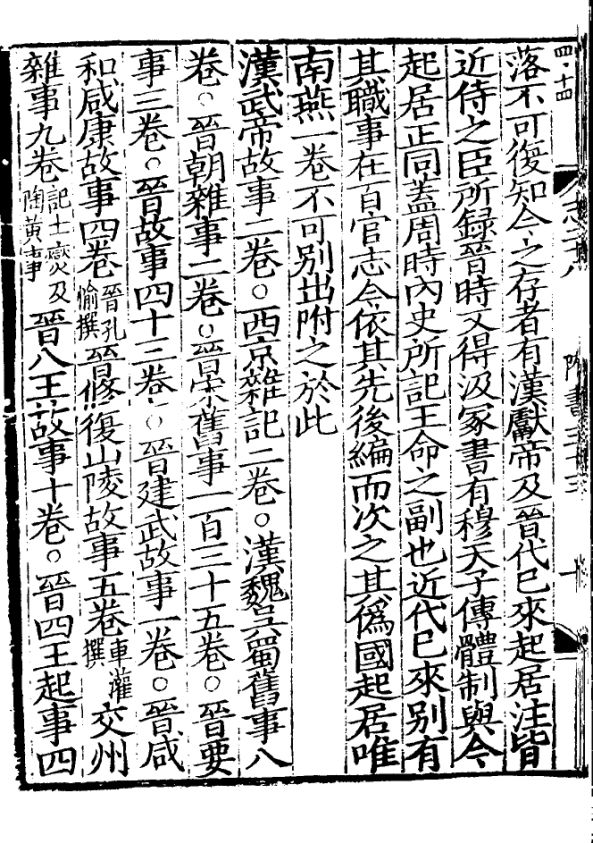 四·十四
志二八
隋書三十三
十
落不可復知今之存者有漢獻帝及晉代已來起居注皆
近侍之臣所録晉時又得汲冢書有穆天子傳體制與今
起居正同蓋周時內史所記王命之副也近代已來別有
其職事在百官志今依其先後編而次之其僞國起居唯
南燕一卷不可別出附之於此
漢武帝故事二卷○西京雜記二卷○漢魏吳蜀舊事八
卷○晉朝雜事二卷○晉宋舊事一百三十五卷○晉要
事三卷○晉故事四十三卷○晉建武故事一卷○晉咸
和咸康故事四卷晉孔愉撰晉修復山陵故事五卷車灌撰交州
雜事九卷記士燮及陶黃事晉八王故事十卷○晉四王起事四